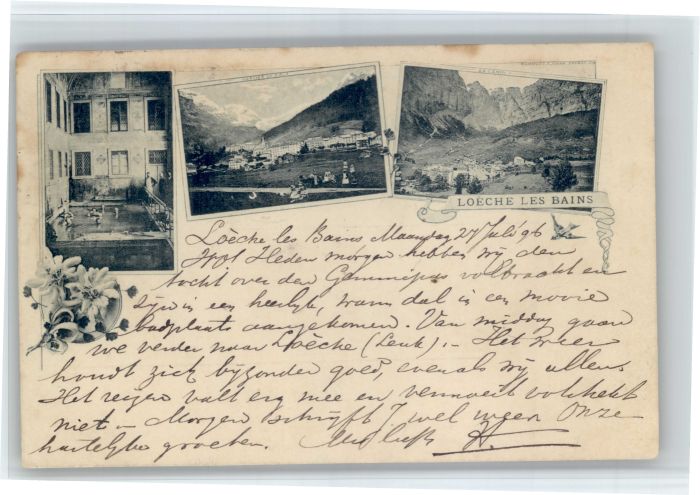 LOÈCHE LES BAINS
Loèche les Bains Maandag 27 Juli 96
Heden morgen hebben wij den
tocht over den Gemmipas volbracht en
zijn in een heerlijk, warm dal in een mooie
badplaats aangekomen. Van middag gaan
we verder naar Loèche (Leuk). - Het weer
houdt zich bijzonder goed, evenals wij allen.
Het reizen valt erg mee en vermoeit volstrekt
niet. - Morgen schrijft J wel weer. Onze
hartelijke groeten.